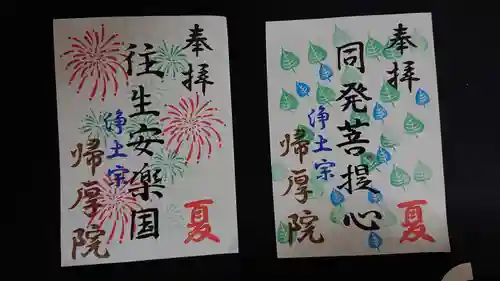 奉拝
夏
往生安楽国
浄土宗
帰厚院
奉拝
夏
同発菩提心
浄土宗
帰厚院